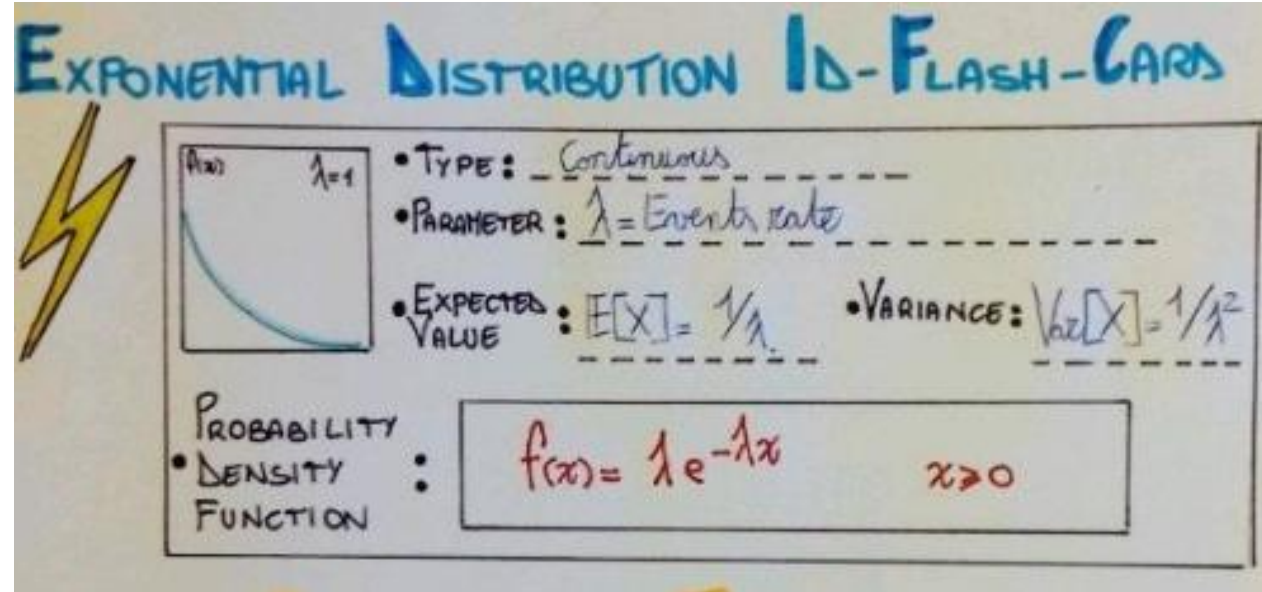 EXPONENTIAL DISTRIBUTION ID-FLASH-CARD
f(x) λ=1
• TYPE: Continuous
• PARAMETER: λ = Events rate
• EXPECTED VALUE: E[X] = 1/λ
• VARIANCE: Var[X] = 1/λ²
• PROBABILITY
DENSITY
FUNCTION :
f(x) = λe^-λx x⩾0